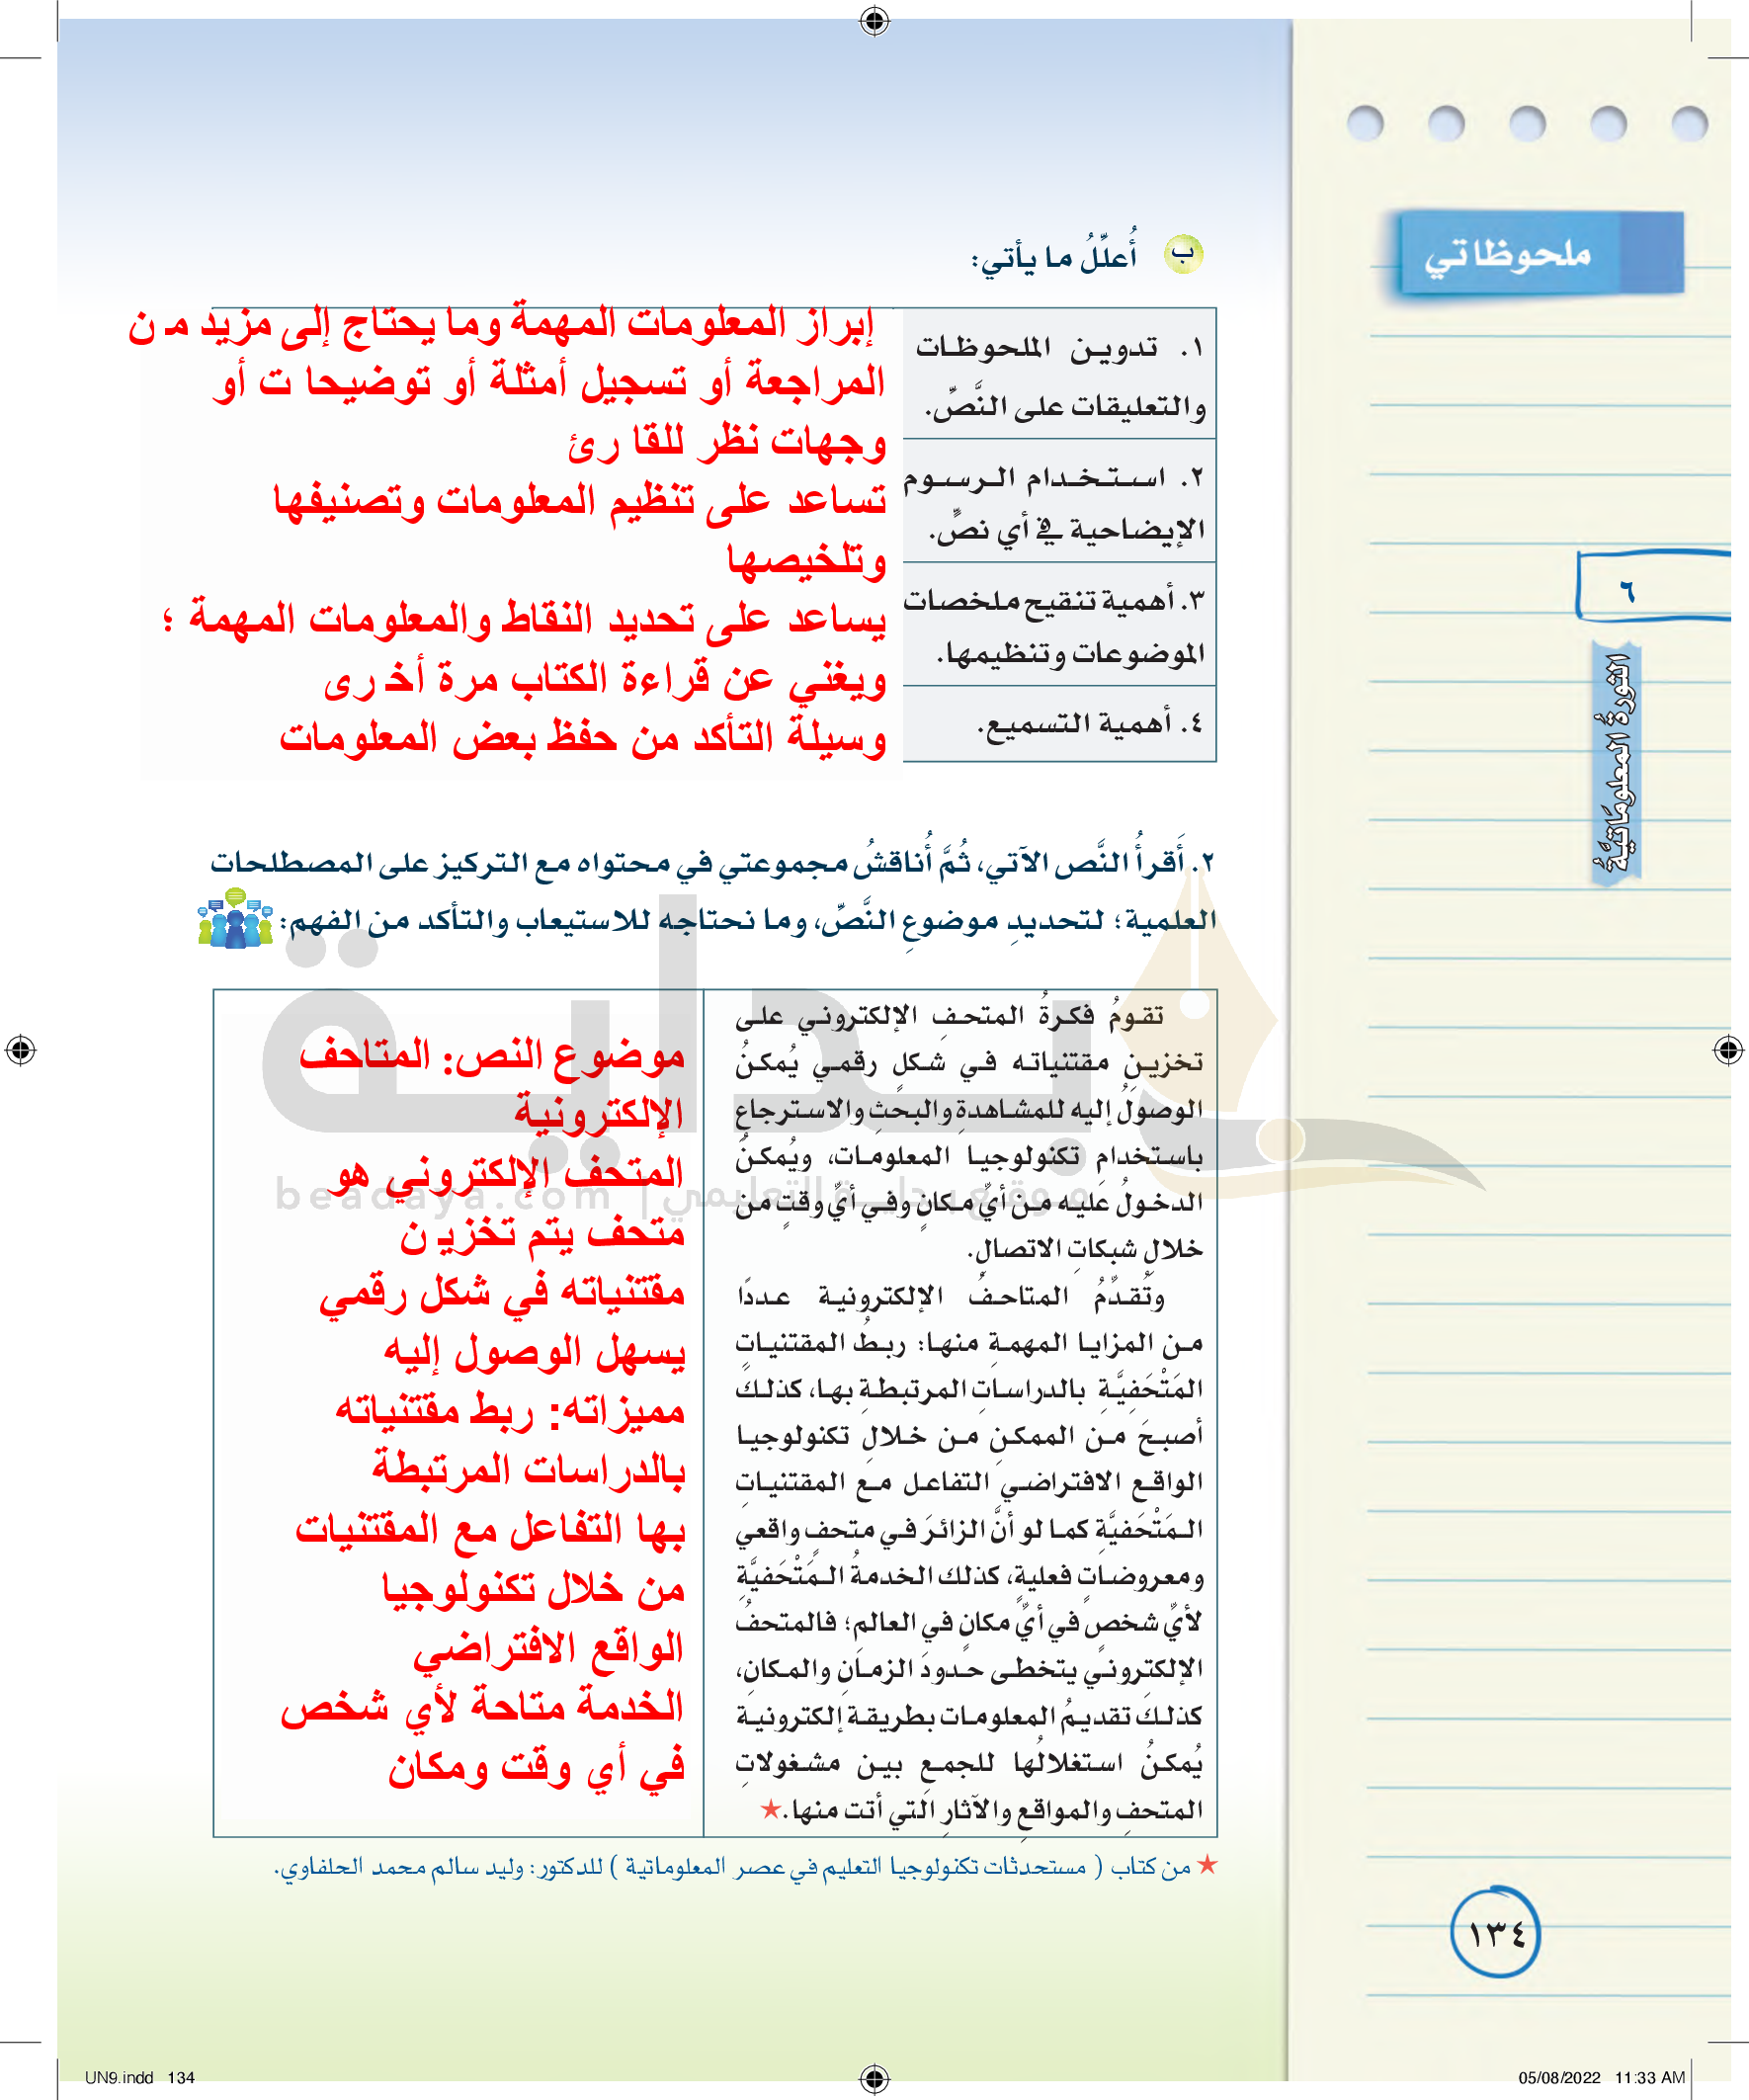 ملحوظاتي
٦
الثورةُ المعلوماتيَّةُ
ب
أُعلِّلُ ما يأتي:
١. تدوين الملحوظات
والتعليقات على النَّصِّ.
إبراز المعلومات المهمة وما يحتاج إلى مزيد من
المراجعة أو تسجيل أمثلة أو توضيحا ت أو
وجهات نظر للقا رئ
٢. استخدام الرسوم
الإيضاحية في أي نصٍّ.
تساعد على تنظيم المعلومات وتصنيفها
وتلخيصها
٣. أهمية تنقيح ملخصات
الموضوعات وتنظيمها.
يساعد على تحديد النقاط والمعلومات المهمة ؛
ويغني عن قراءة الكتاب مرة أخرى
٤. أهمية التسميع.
وسيلة التأكد من حفظ بعض المعلومات
٢. أَقرأُ النَّص الآتي، ثُمَّ أُناقشُ مجموعتي في محتواه مع التركيز على المصطلحات
العلمية؛ لتحديدِ موضوعِ النَّصِّ، وما نحتاجه للاستيعاب والتأكد من الفهم:
تقومُ فكرةُ المتحفِ الإلكتروني على
تخزينِ مقتنياته في شكلٍ رقمي يُمكنُ
الوصولُ إليه للمشاهدةِ والبحثِ والاسترجاعِ
باستخدامِ تكنولوجيا المعلومات، ويُمكنُ
الدخولُ عليه من أيِّ مكانٍ وفي أيِّ وقتٍ من
خلالِ شبكاتِ الاتصالِ.
وتُقدِّمُ المتاحفُ الإلكترونية عددًا
من المزايا المهمةِ منها: ربطُ المقتنياتِ
المَتْحَفِيَّةِ بالدراساتِ المرتبطةِ بها، كذلكَ
أصبحَ من الممكنِ من خلالِ تكنولوجيا
الواقع الافتراضي التفاعل مع المقتنياتِ
المَتْحَفيَّةِ كما لو أنَّ الزائرَ في متحفٍ واقعي
ومعروضاتٍ فعليةٍ، كذلك الخدمةُ المَتْحَفيَّةِ
لأيِّ شخصٍ في أيِّ مكانٍ في العالمِ؛ فالمتحفُ
الإلكتروني يتخطى حدودَ الزمانِ والمكانِ،
كذلكَ تقديمُ المعلومات بطريقة إلكترونية
يُمكنُ استغلالُها للجمعِ بين مشغولاتِ
المتحفِ والمواقعِ والآثارِ التي أتت منها.★
موضوع النص: المتاحف
الإلكترونية
المتحف الإلكتروني هو
متحف يتم تخزين
مقتنياته في شكل رقمي
يسهل الوصول إليه
مميزاته: ربط مقتنياته
بالدراسات المرتبطة
بها التفاعل مع المقتنيات
من خلال تكنولوجيا
الواقع الافتراضي
الخدمة متاحة لأي شخص
في أي وقت ومكان
بداية
موقع بداية التعليمي | beadaya.com
★ من كتاب ( مستحدثات تكنولوجيا التعليم في عصر المعلوماتية ) للدكتور: وليد سالم محمد الحلفاوي.
١٣٤
UN9.indd 134
05/08/2022 11:33 AM